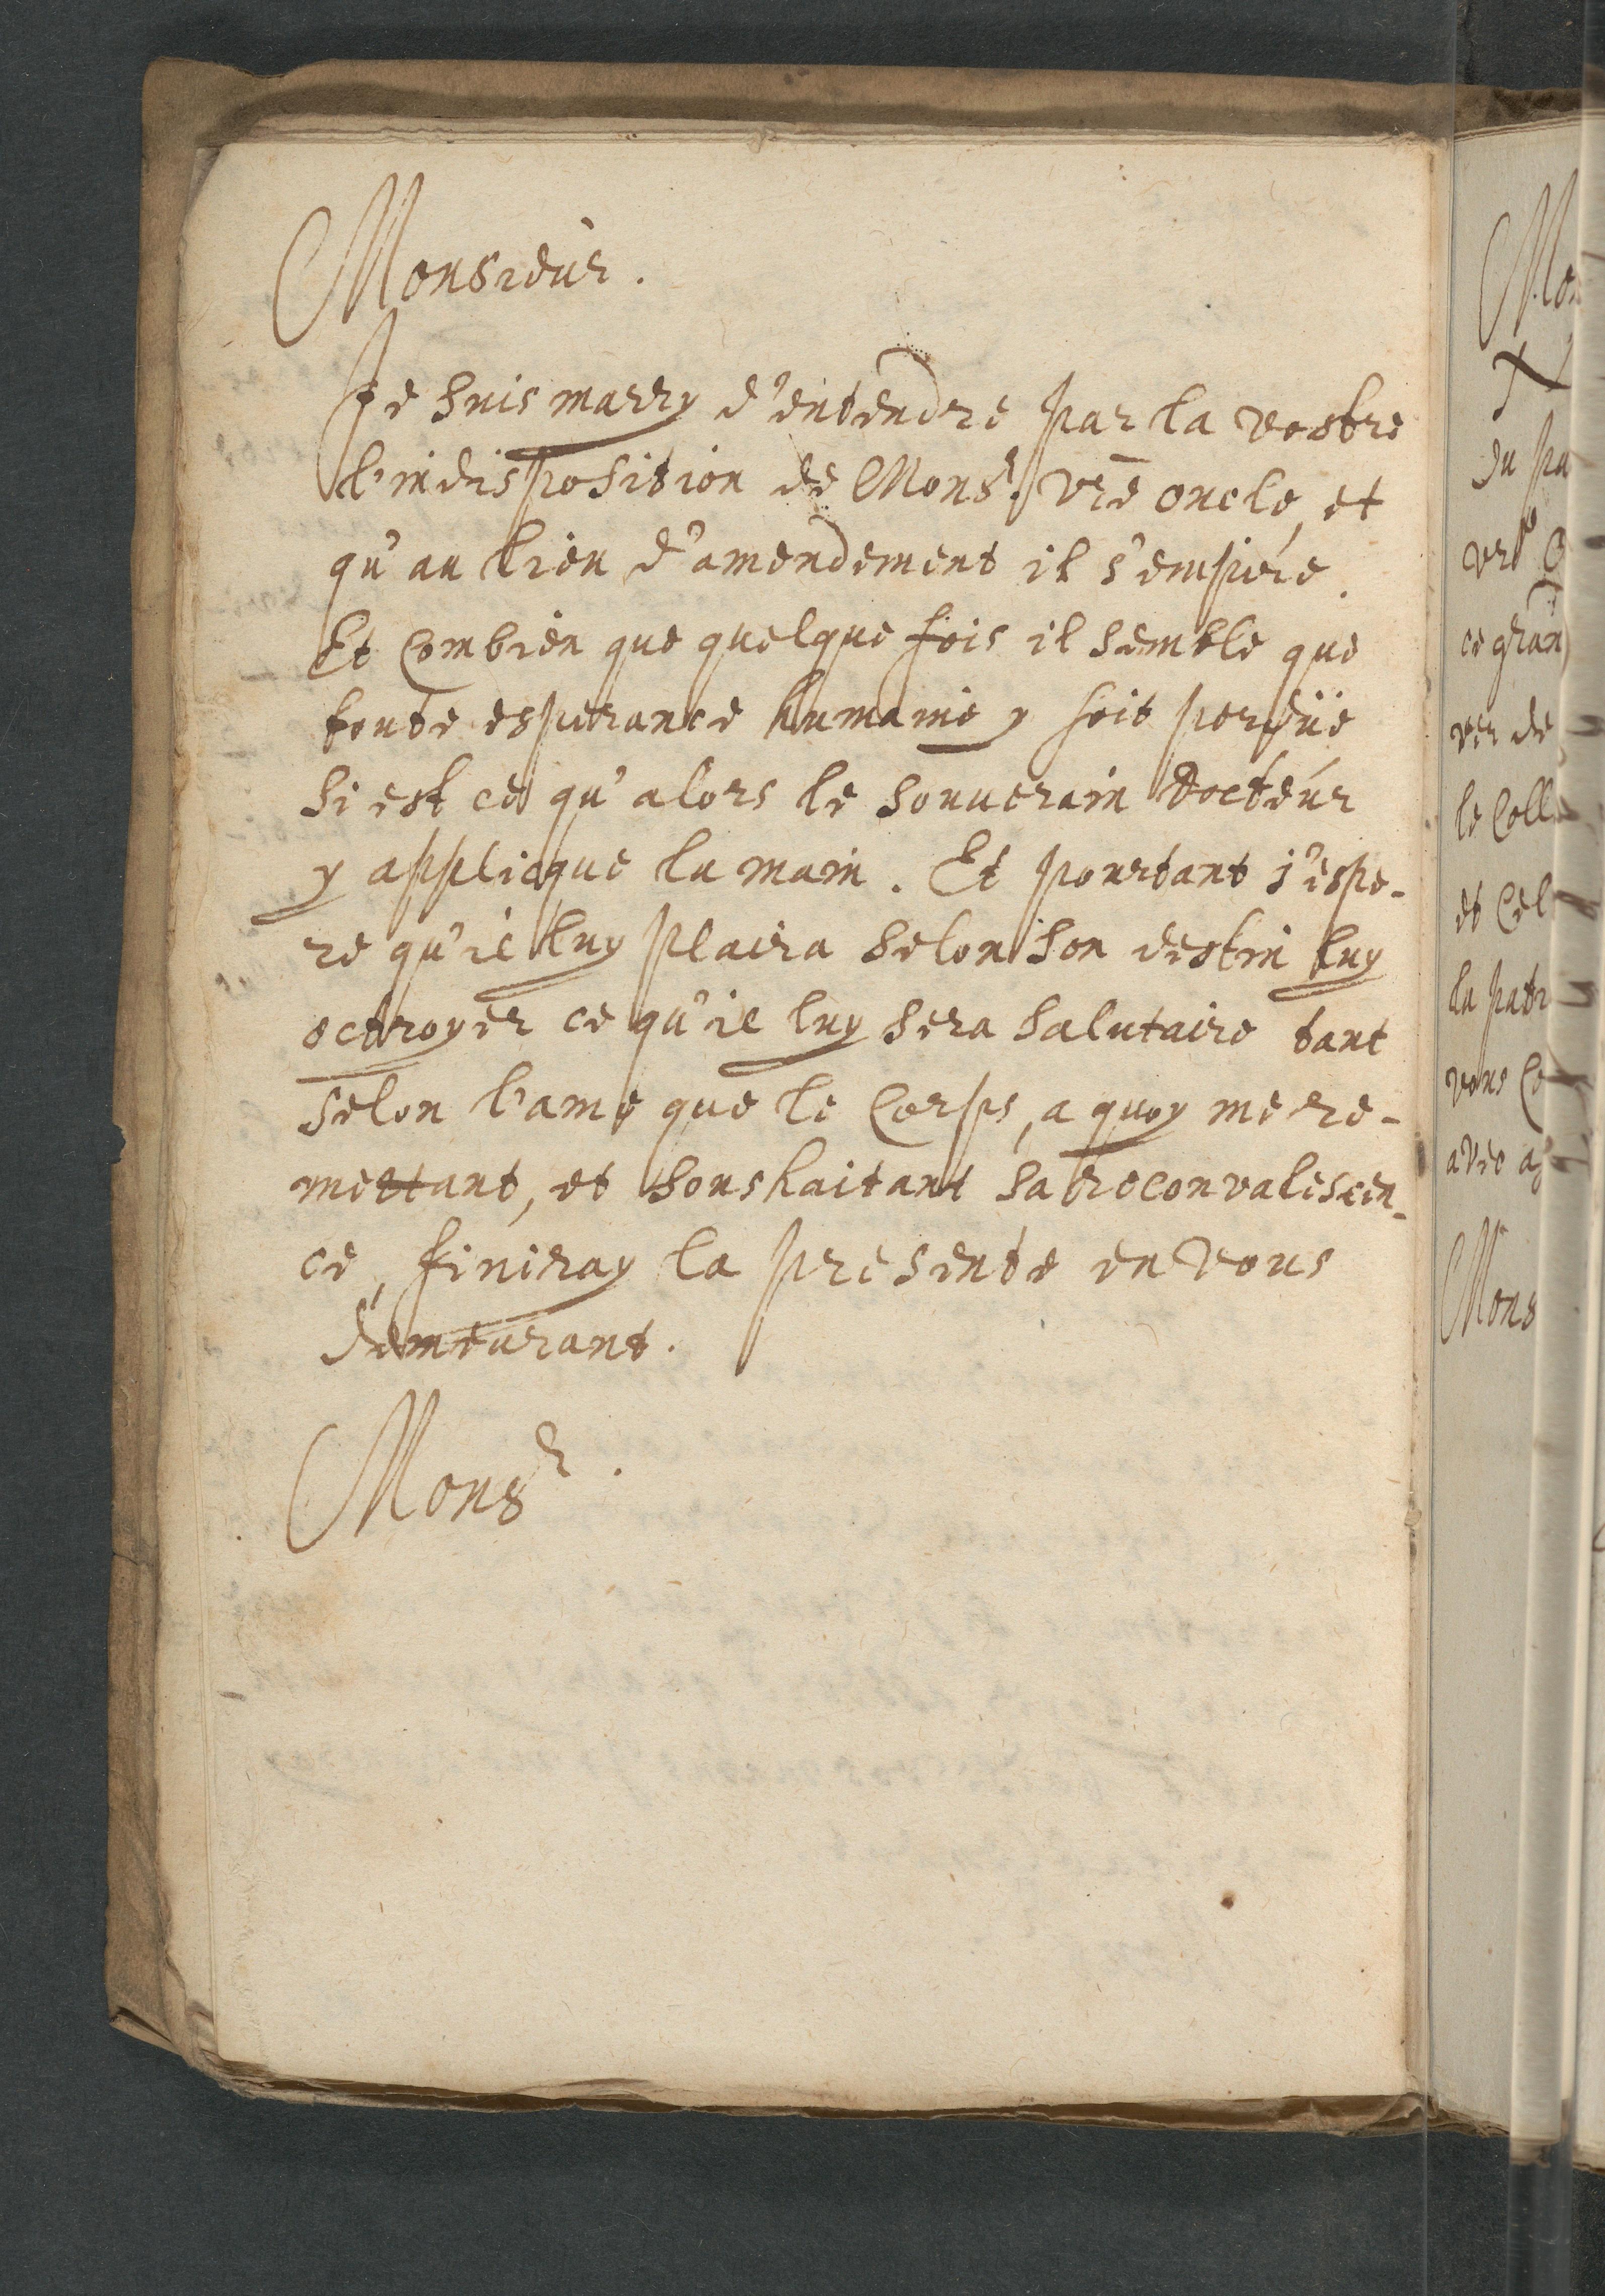 Monsieur.
Je suis marry d'entendre par la vostre
l'indisposition de Monsr. vre oncle, et
qu'au lieu d'amendement il s'empire.
Et Combien que quelque fois il semble que
toute esperance humaine y soit perduë
si est ce qu'alors le souuerain docteur
y applicque la main. Et pourtant j'espe-
re qu'il luy plaira selon son destin luy
octroyer ce qu'il luy sera salutaire tant
selon l'ame que le Corps, a quoy me re-
mettant, et soushaitant sa reconvalescen-
ce, finiray la presente en vous
demeurant.
Monsr.
du pa
ce gran
ver de
le Coll
et Cel
la patr
vous Co
avec a
Mons